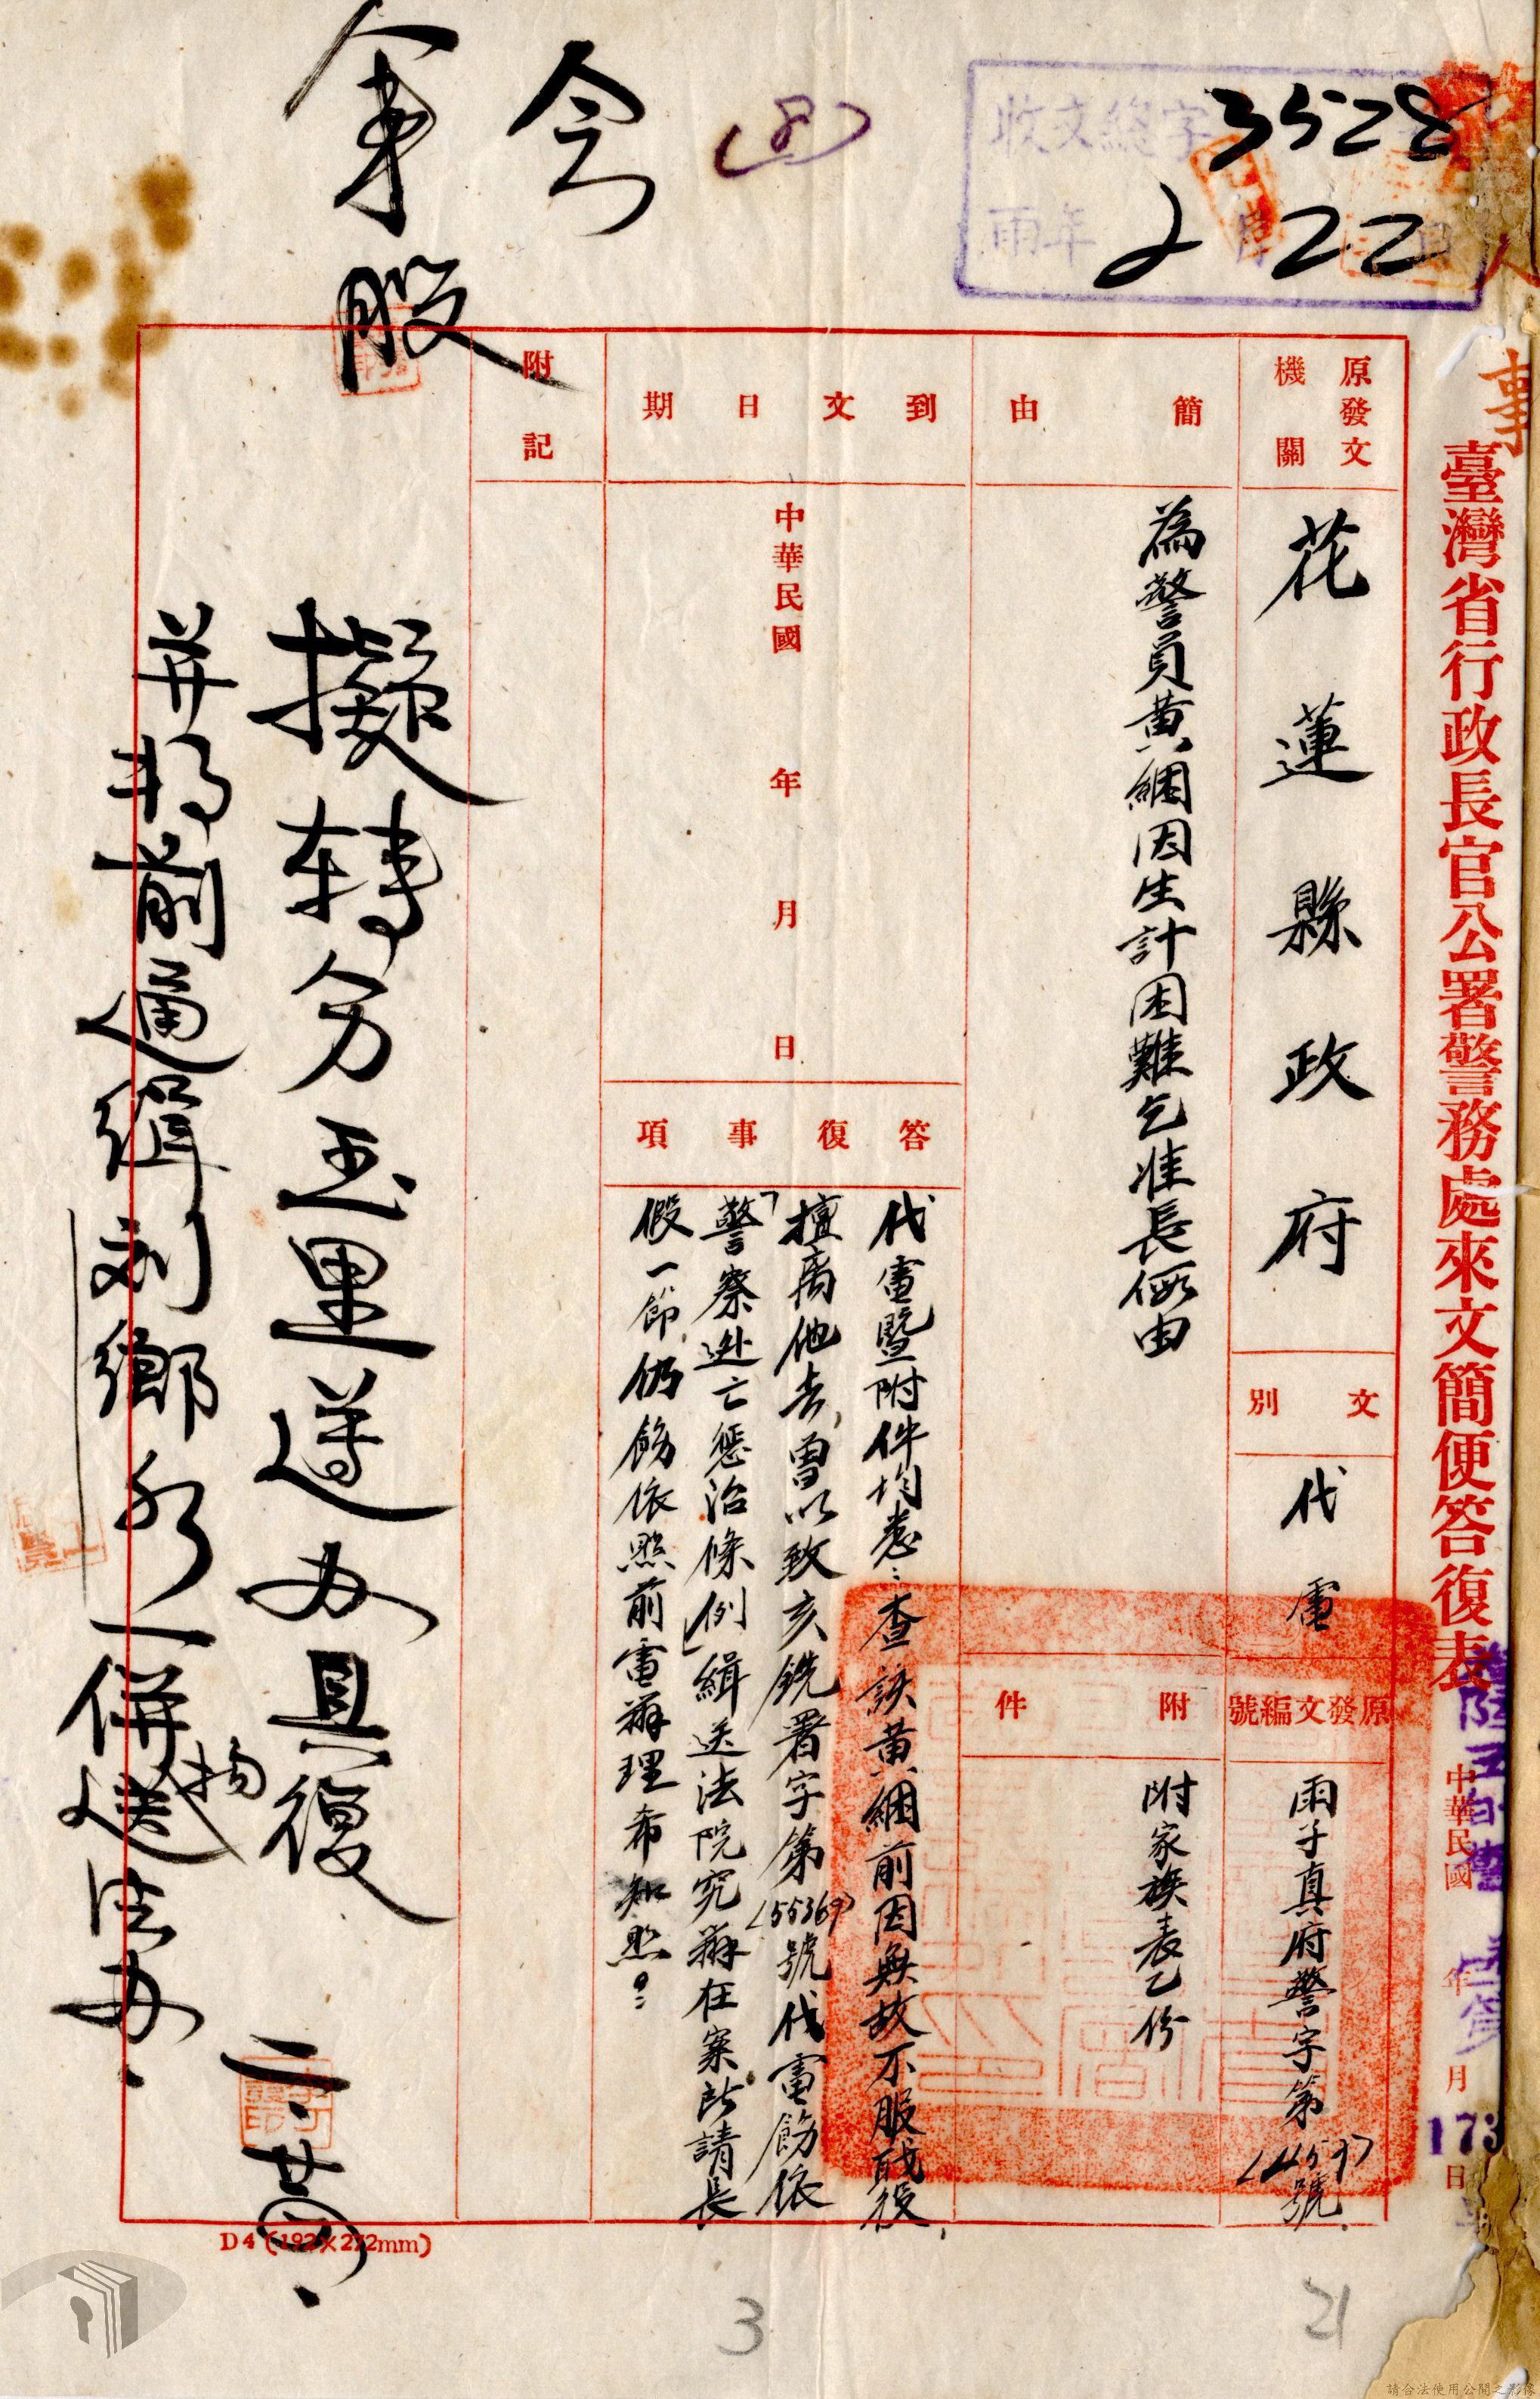 臺灣省行政長官公署警務處來文簡便答復表
中華民國 年 月 173 日
收文總字 3528
雨年 2 月 22 日
(8)
令
事
人
原發文機關
花蓮縣政府
文別
代電
原發文編號
雨子真府警字第 號
簡由
為警員黃綑因生計困難乞准長假由
附件
附家族表乙份
到文日期
中華民國 年 月 日
答復事項
代電暨附件均悉:查該黃綑前因無故不服職役,
擅离他去,曾以致亥銑署字第(55369)號代電飭依
「警察逃亡懲治條例」緝送法院究辦在案所請長
假一節,仍飭依照前電辦理希知照。
附記
股
擬轉分玉里遵办具復
二.廿四.
并將前通緝刘鄉 一併拘送法办.
D4(192×272mm)
3
21
請合法使用公開之影像